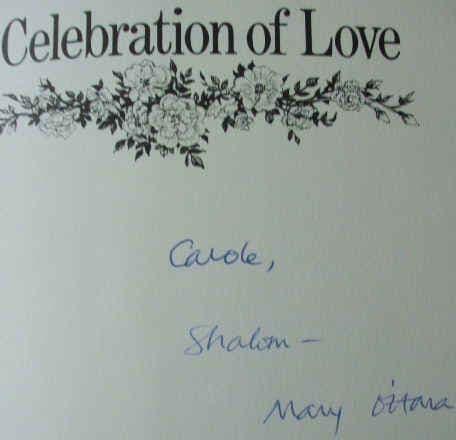 Celebration of Love
Carole,
Shalom –
Mary O'Hara